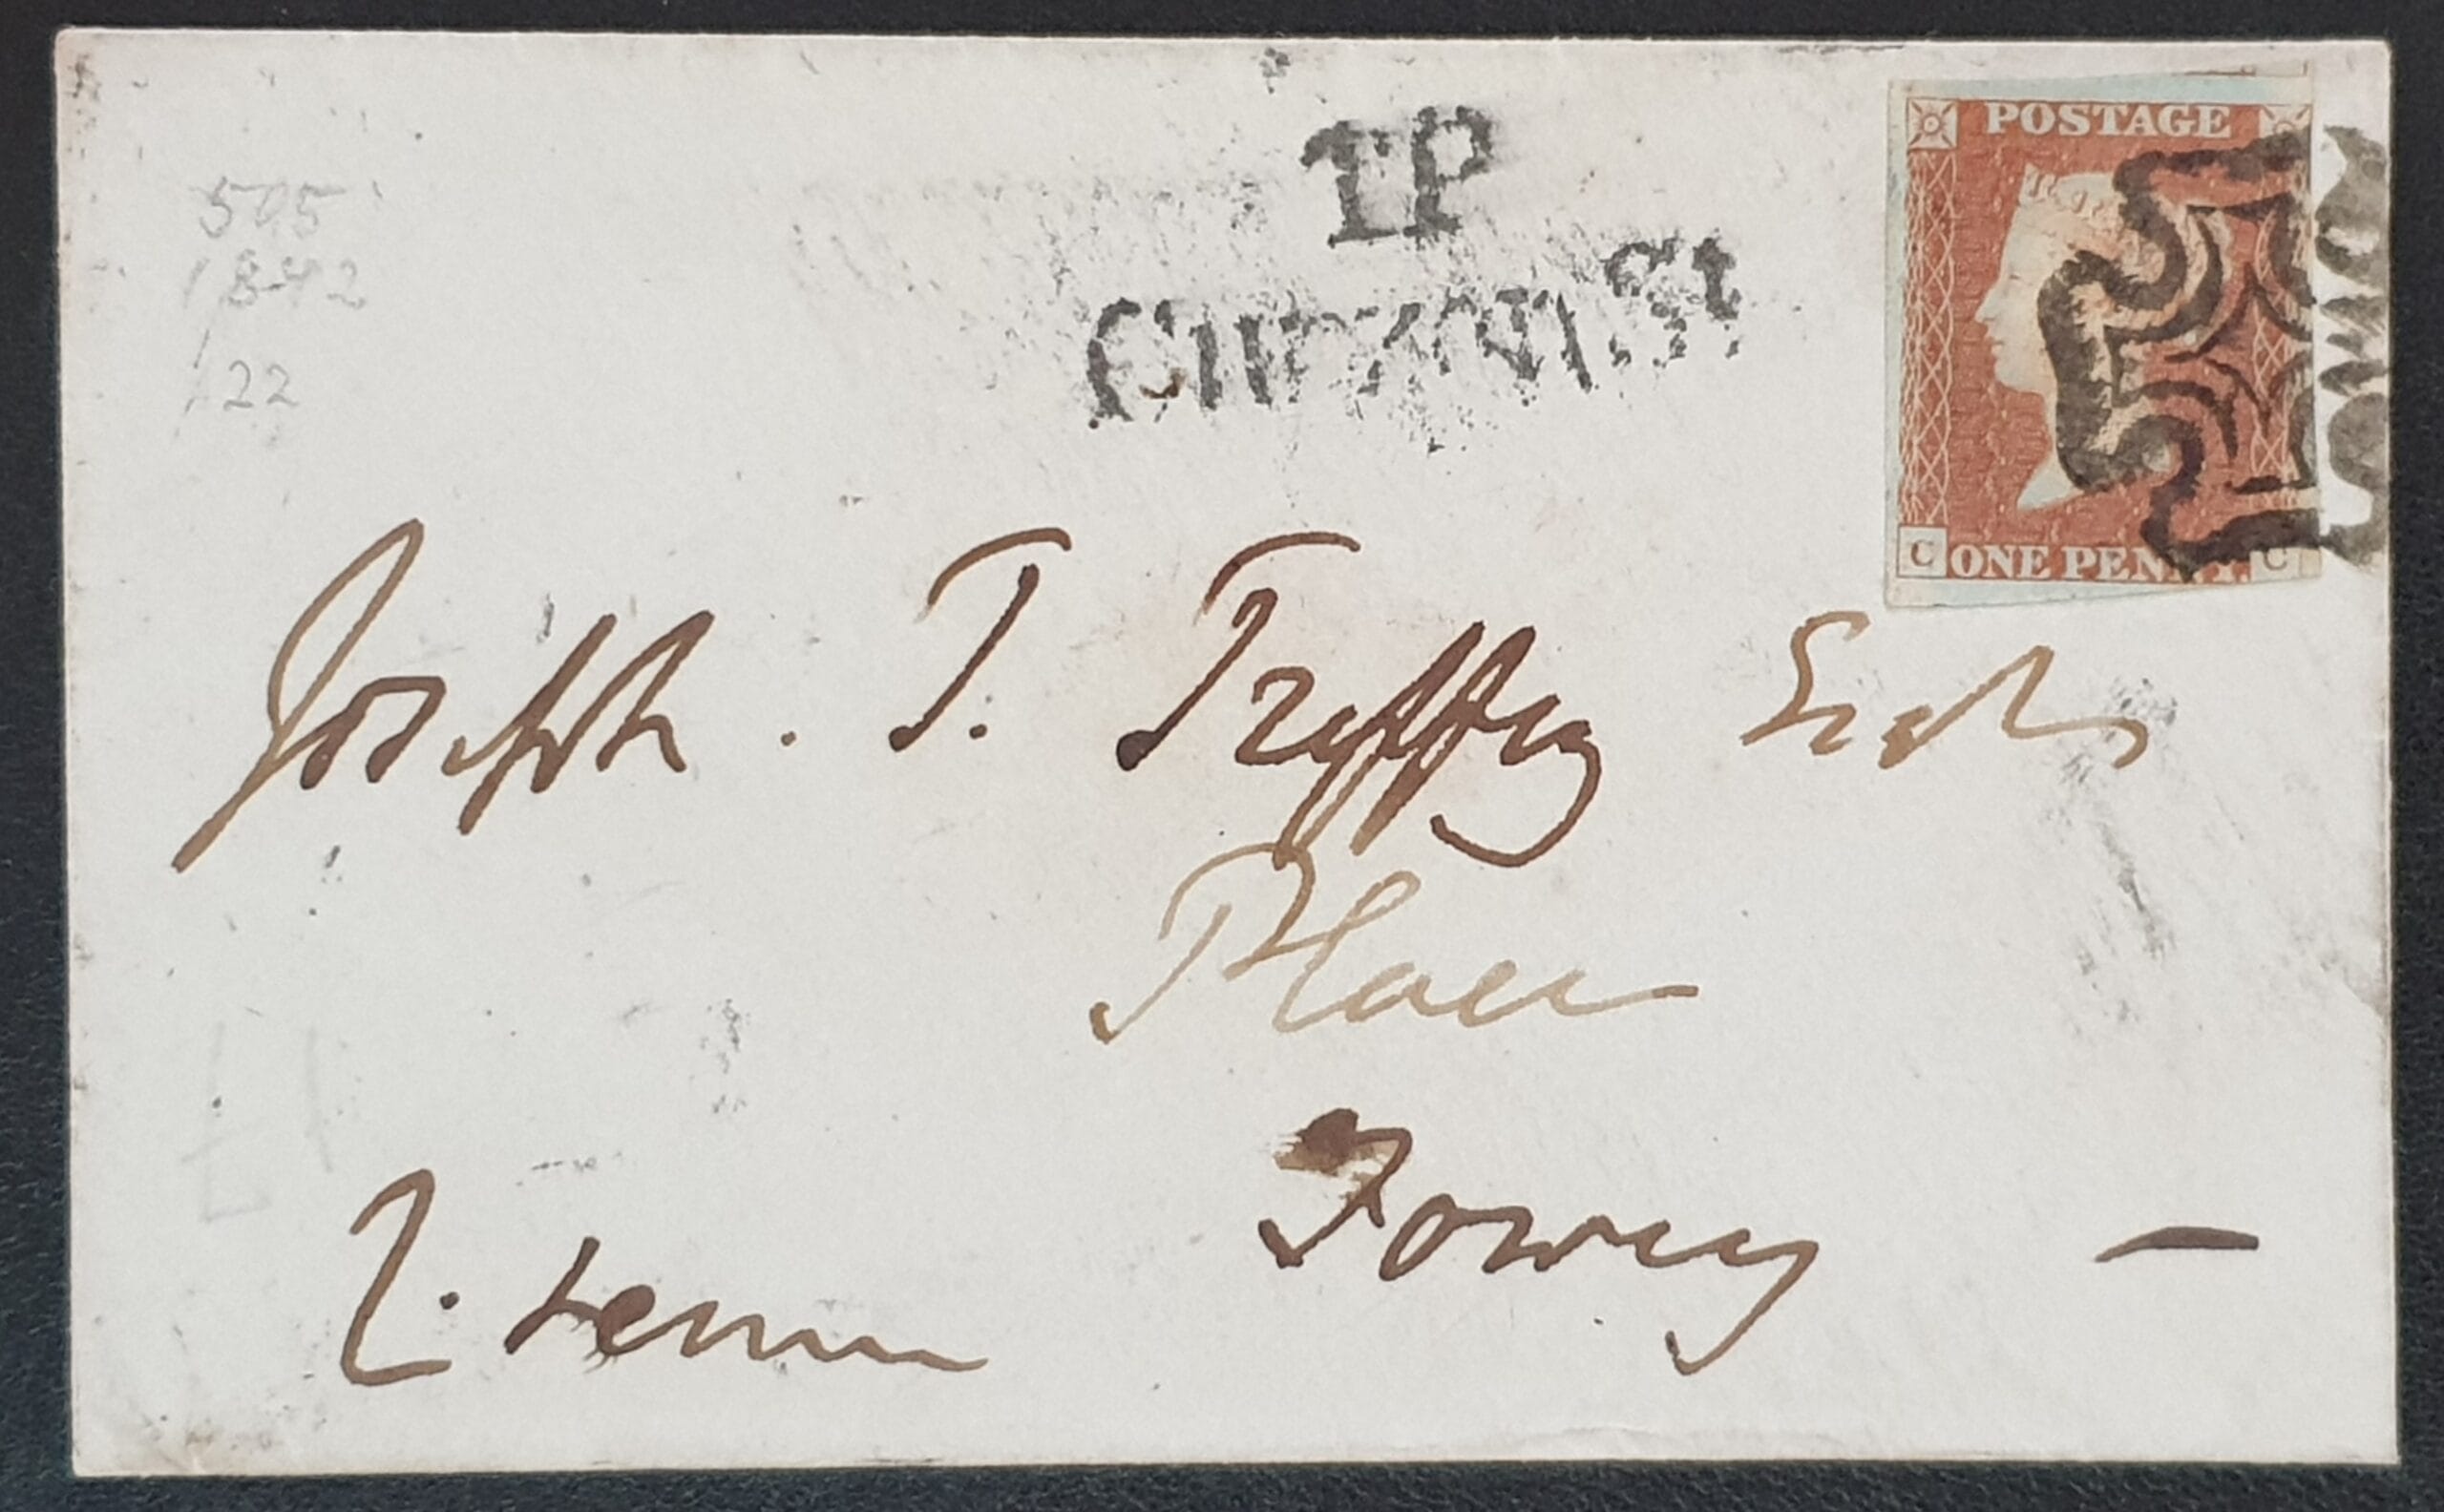 505
1842
22
TP
Curzon St
POSTAGE
C ONE PENNY. C
Joseph. T. Treffry Esq
Place
Fowey —